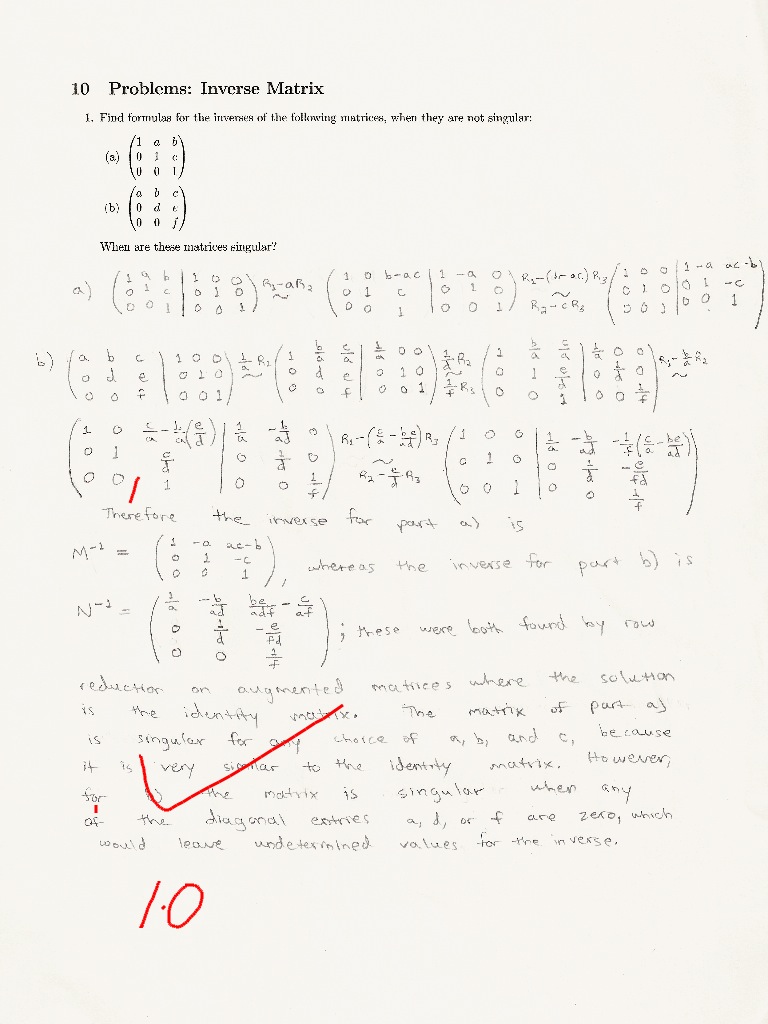 10 Problems: Inverse Matrix
1. Find formulas for the inverses of the following matrices, when they are not singular:
(a) (1 a b
0 1 c
0 0 1)
(b) (a b c
0 d e
0 0 f)
When are these matrices singular?
a) (1 a b | 1 0 0
0 1 c | 0 1 0
0 0 1 | 0 0 1) R₁-aR₂ ~ (1 0 b-ac | 1 -a 0
0 1 c | 0 1 0
0 0 1 | 0 0 1) R₁-(b-ac)R₃ ~ R₂-cR₃ (1 0 0 | 1 -a ac-b
0 1 0 | 0 1 -c
0 0 1 | 0 0 1)
b) (a b c | 1 0 0
0 d e | 0 1 0
0 0 f | 0 0 1) 1/a R₁ ~ (1 b/a c/a | 1/a 0 0
0 d e | 0 1 0
0 0 f | 0 0 1) 1/d R₂ ~ 1/f R₃ (1 b/a c/a | 1/a 0 0
0 1 e/d | 0 1/d 0
0 0 1 | 0 0 1/f) R₁-b/a R₂ ~
(1 0 c/a-b/a(e/d) | 1/a -b/ad 0
0 1 e/d | 0 1/d 0
0 0 1 | 0 0 1/f) R₁-(c/a-be/ad)R₃ ~ R₂-e/d R₃ (1 0 0 | 1/a -b/ad -1/f(c/a-be/ad)
0 1 0 | 0 1/d -e/fd
0 0 1 | 0 0 1/f)
Therefore the inverse for part a) is
M⁻¹ = (1 -a ac-b
0 1 -c
0 0 1), whereas the inverse for part b) is
N⁻¹ = (1/a -b/ad be/adf - c/af
0 1/d -e/fd
0 0 1/f); these were both found by row
reduction on augmented matrices where the solution
is the identity matrix. The matrix of part a)
is singular for any choice of a, b, and c, because
it is very similar to the identity matrix. However,
for b) the matrix is singular when any
of the diagonal entries a, d, or f are zero, which
would leave undetermined values for the inverse.
1.0